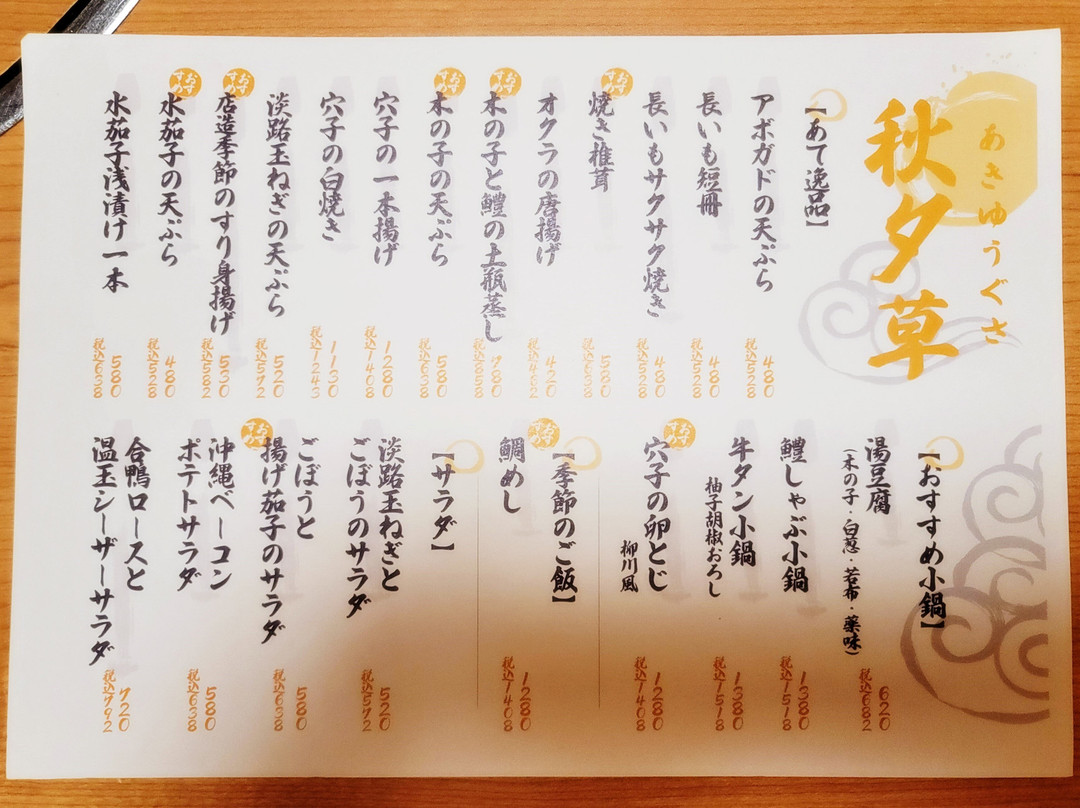 秋夕草
あきゆうぐさ
【あて逸品】
アボガドの天ぷら
480
税込528
長いも短冊
480
税込528
長いもサクサク焼き
480
税込528
おすすめ
焼き椎茸
580
税込638
オクラの唐揚げ
420
税込462
おすすめ
木の子と鱧の土瓶蒸し
780
税込858
おすすめ
木の子の天ぷら
580
税込638
穴子の一本揚げ
1280
税込1408
穴子の白焼き
1130
税込1243
淡路玉ねぎの天ぷら
520
税込572
おすすめ
店造季節のすり身揚げ
530
税込582
おすすめ
水茄子の天ぷら
480
税込528
水茄子浅漬け一本
580
税込638
【おすすめ小鍋】
湯豆腐
（木の子・白葱・若布・薬味）
620
税込682
鱧しゃぶ小鍋
1380
税込1518
牛タン小鍋
柚子胡椒おろし
1380
税込1518
おすすめ
穴子の卵とじ
柳川風
1280
税込1408
【季節のご飯】
おすすめ
鯛めし
1280
税込1408
【サラダ】
淡路玉ねぎと
ごぼうのサラダ
520
税込572
ごぼうと
おすすめ
揚げ茄子のサラダ
580
税込638
沖縄ベーコン
ポテトサラダ
580
税込638
合鴨ロースと
温玉シーザーサラダ
720
税込792